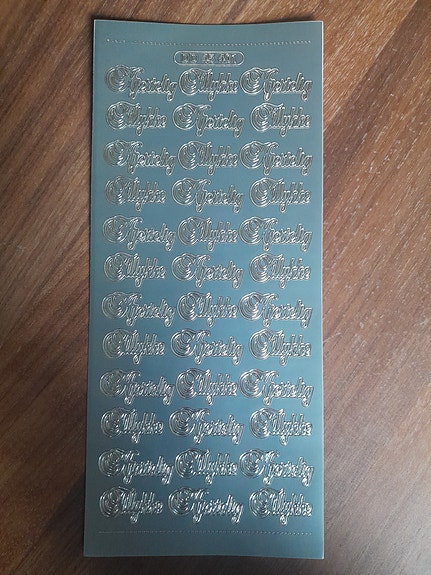 Hjertelig Tillykke Hjertelig
Tillykke Hjertelig Tillykke
Hjertelig Tillykke Hjertelig
Tillykke Hjertelig Tillykke
Hjertelig Tillykke Hjertelig
Tillykke Hjertelig Tillykke
Hjertelig Tillykke Hjertelig
Tillykke Hjertelig Tillykke
Hjertelig Tillykke Hjertelig
Tillykke Hjertelig Tillykke
Hjertelig Tillykke Hjertelig
Tillykke Hjertelig Tillykke